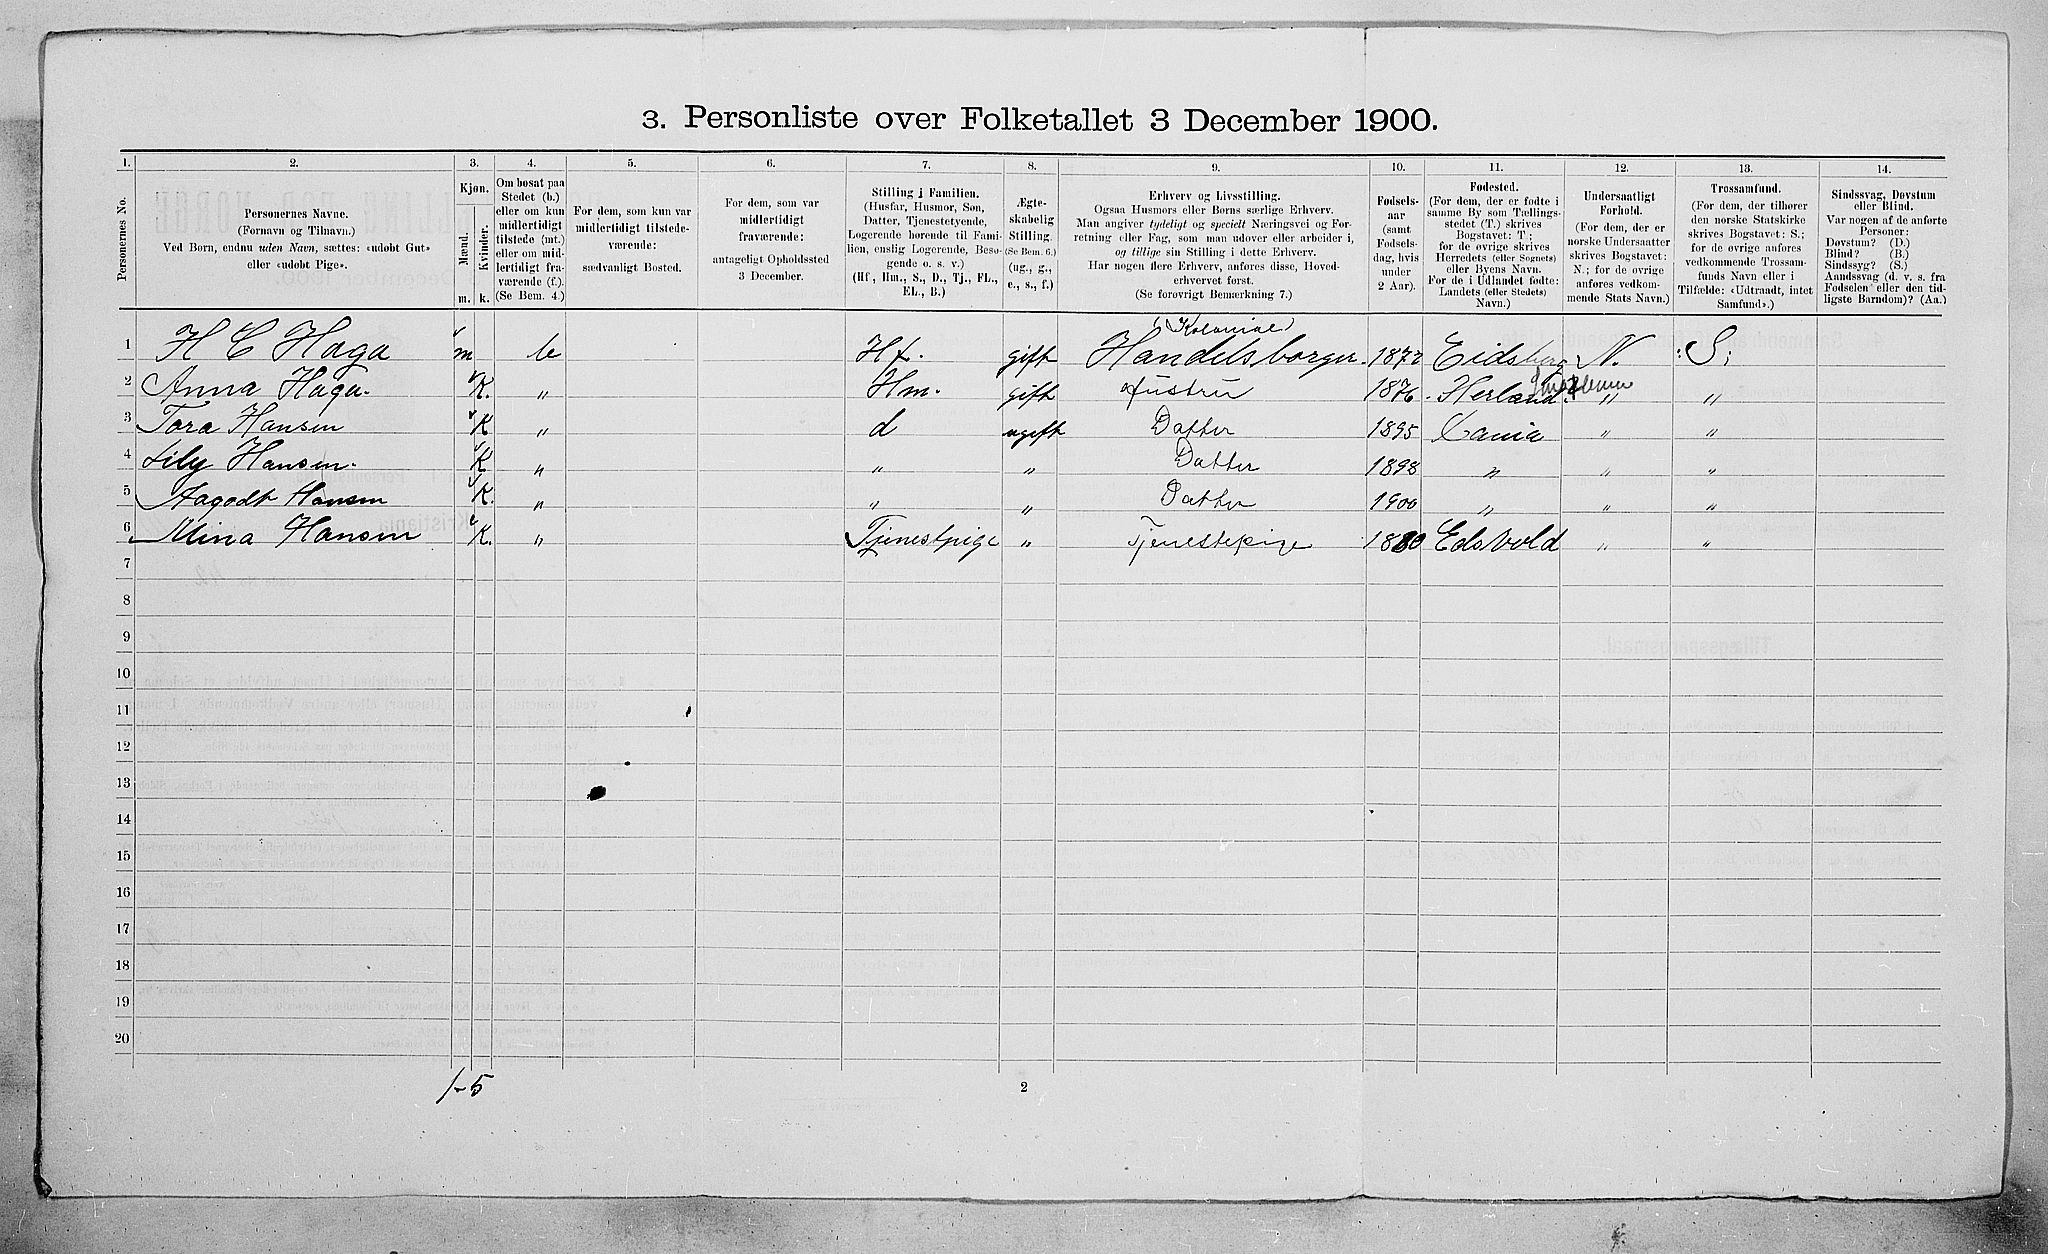 3. Personliste over Folketallet 3 December 1900.
1. 2. 3. 4. 5. 6. 7. 8. 9. 10. 11. 12. 13. 14.
Personernes No.
Personernes Navne.
(Fornavn og Tilnavn.)
Ved Børn, endnu uden Navn, sættes: «udøbt Gut»
eller «udøbt Pige».
Kjøn.
Mænd.
Kvinder.
m. k.
Om bosat paa
Stedet (b.)
eller om kun
midlertidigt
tilstede (mt.)
eller om mid-
lertidigt fra-
værende (f.).
(Se Bem. 4.)
For dem, som kun var
midlertidigt tilstede-
værende:
sædvanligt Bosted.
For dem, som var
midlertidigt
fraværende:
antageligt Opholdssted
3 December.
Stilling i Familien.
(Husfar, Husmor, Søn,
Datter, Tjenestetyende,
Logerende hørende til Fami-
lien, enslig Logerende, Besø-
gende o. s. v.)
(Hf, Hm., S., D., Tj., FL.,
EL., B.)
Ægte-
skabelig
Stilling.
(Se Bem. 6.)
(ug., g.,
e., s., f.)
Erhverv og Livsstilling.
Ogsaa Husmors eller Børns særlige Erhverv.
Man angiver tydeligt og specielt Næringsvei og For-
retning eller Fag, som man udover eller arbeider i,
og tillige sin Stilling i dette Erhverv.
Har nogen flere Erhverv, anføres disse, Hoved-
erhvervet først.
(Se forøvrigt Bemærkning 7.)
Fødsels-
aar
(samt
Fødsels-
dag, hvis
under
2 Aar).
Fødested.
(For dem, der er fødte i
samme By som Tællings-
stedet (T.) skrives
Bogstavet: T;
for de øvrige skrives
Herredets (eller Sognets)
eller Byens Navn.
For de i Udlandet fødte:
Landets (eller Stedets)
Navn.)
Undersaatligt
Forhold.
(For dem, der er
norske Undersaatter
skrives Bogstavet:
N.; for de øvrige
anføres vedkom-
mende Stats Navn.)
Trossamfund.
(For dem, der tilhører
den norske Statskirke
skrives Bogstavet: S.;
for de øvrige anføres
vedkommende Trossam-
funds Navn eller i
Tilfælde: «Udtraadt, intet
Samfund».)
Sindssvag, Døvstum
eller Blind.
Var nogen af de anførte
Personer:
Døvstum? (D.)
Blind? (B.)
Sindssyg? (S.)
Aandssvag (d. v. s. fra
Fødselen eller den tid-
ligste Barndom)? (Aa.)
(Kolonial)
1 H C Haga m b Hf. gift Handelsborger. 1872 Eidsberg N. S.
2 Anna Haga. K. " Hm. gift Hustru 1876 Herland " "
3 Tora Hansen K " d ugift Datter 1895 X ania " "
4 Lily Hansen. K " " " Datter 1898 " " "
5 Aagodt Hansen K. " " " Datter 1900 " " "
6 Mina Hansen K. " Tjenestpige " Tjenestepige 1880 Edsvold " "
7
8
9
10
11
12
13
14
15
16
17
18
19
20
1-5
2